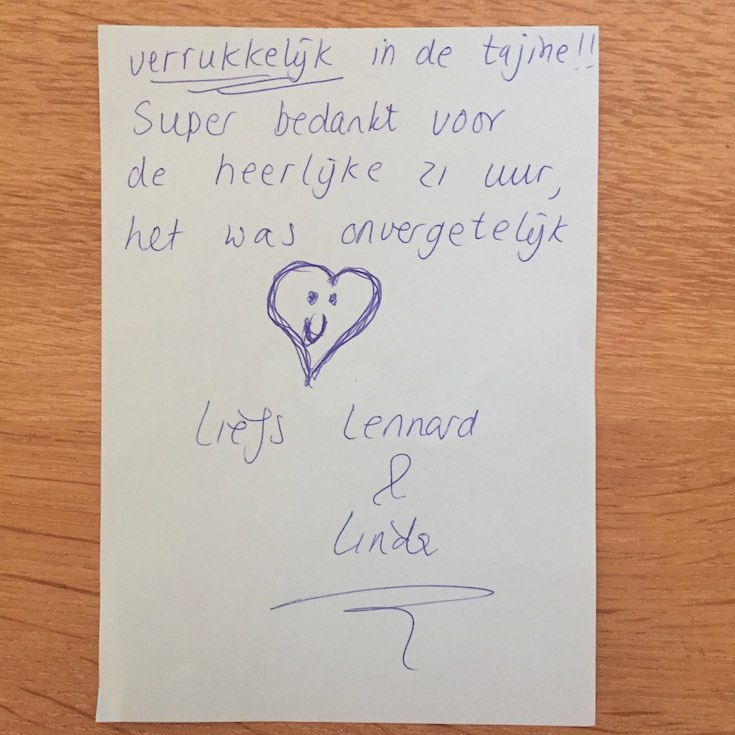 verrukkelijk in de tajine!!
Super bedankt voor
de heerlijke 21 uur,
het was onvergetelijk
Liefs Lennard
&
Linda